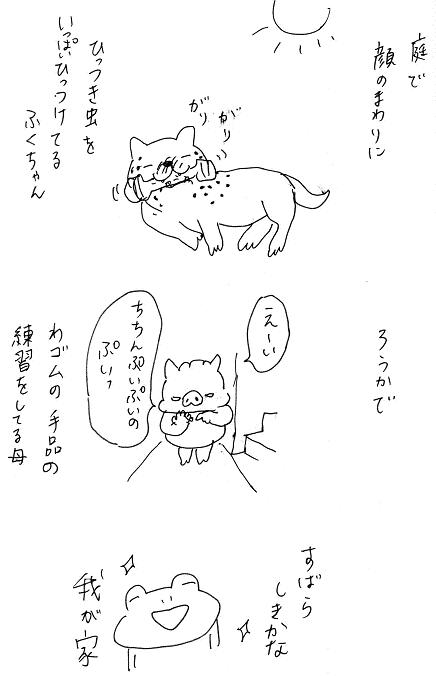 庭で
顔のまわりに
がり
がり
ひっつき虫を
いっぱいひっつけてる
ふくちゃん
ろうかで
えーい
ちちんぷいぷいの
ぷいっ
わゴムの手品の
練習をしてる母
すばら
しきかな
我が家